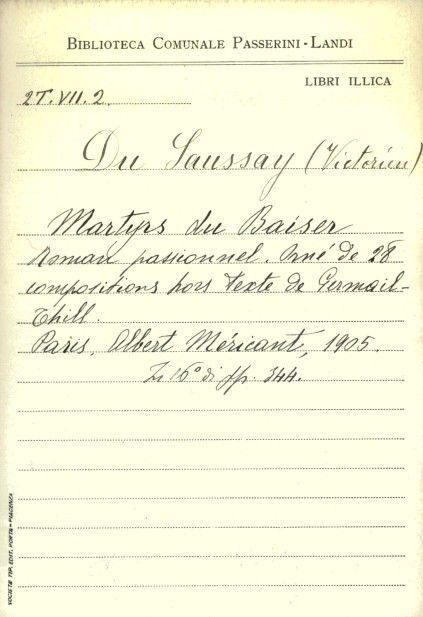 BIBLIOTECA COMUNALE PASSERINI-LANDI
LIBRI ILLICA
2T.VII.2.
Du Saussay (Victorien)
Martyrs du Baiser
Roman passionnel. Orné de 28
compositions hors texte de Germail-
Thill.
Paris, Albert Méricant, 1905.
In 16° di pp. 344.
SOCIETÀ TIP. EDIT. PORTA - PIACENZA